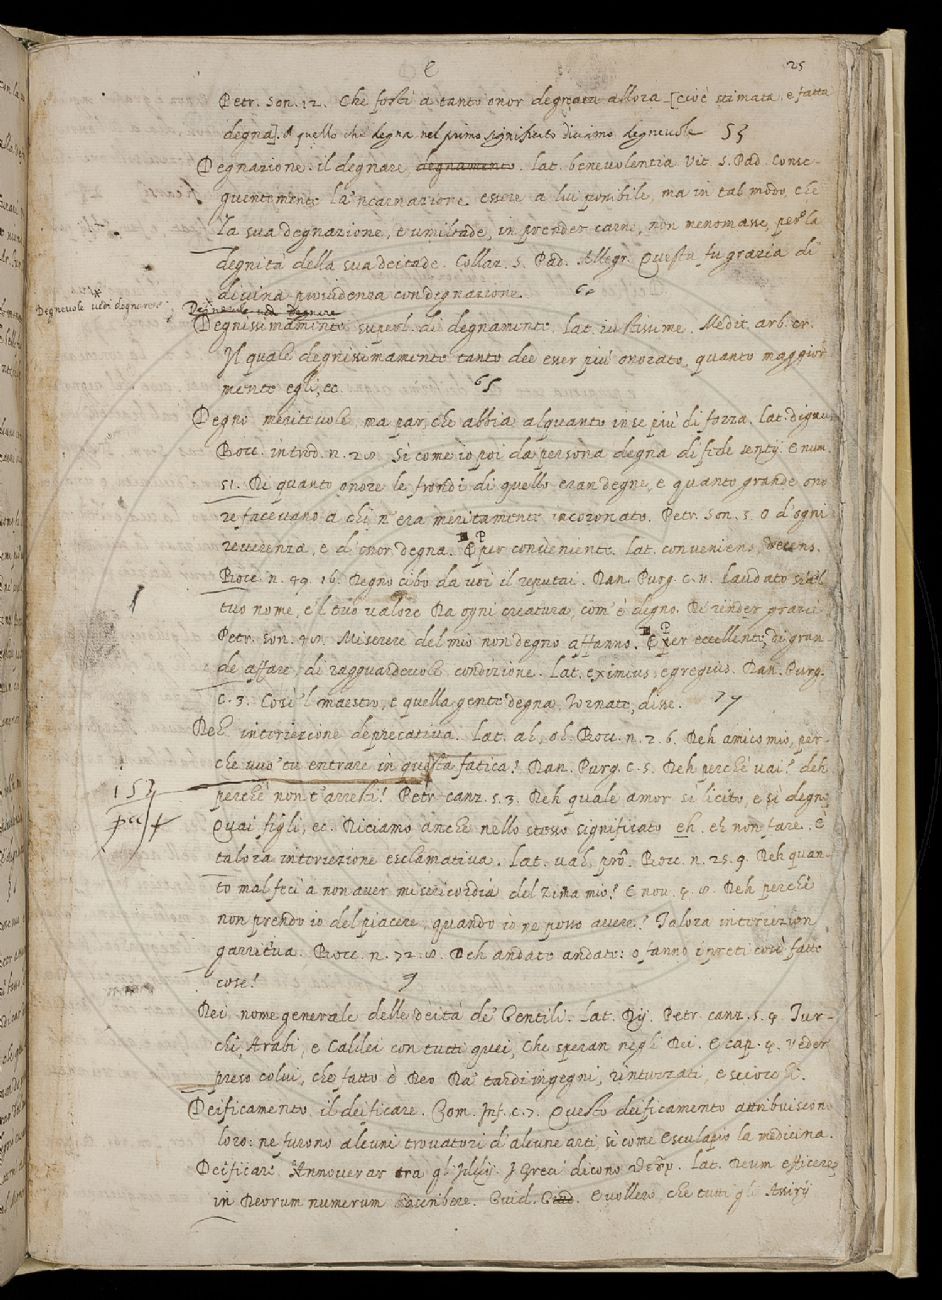 e 25
Petr. Son. 12. Che fosti a tanto onor degnata allora [cioè stimata, e fatta
degna] A quello che degna nel primo significato diciamo degneuole 53
Degnazione. il degnare, degnamento. Lat. beneuolentia. Vit. S. Pad. Conse-
quentemente la 'ncarnazione essere a lui possibile, ma in tal modo, che
la sua degnazione, e umiltade, in prender carne, non menomasse, per la
degnità della sua deitade. Collaz. S. Pad. Allegr. Questa fu grazia di
diuina prouidenza con degnazione. 60
Degneuole
Degneuole
Degnissimamente superl. di degnamente. Lat. iustissime. Medit. arb. cr.
Il quale degnissimamente tanto dee esser più onorato, quanto maggior
mente egli, ec. 65
Degno meriteuole, ma par, che abbia alquanto in se più di forza. Lat. dignus
Bocc. introd. n. 28. Si come io poi da persona degna di fede sentij. E num.
51. Di quanto onore le frondi di quello eran degne, e quanto grande ono
re faceuano a chi n'era meritamente incoronato. Petr. Son. 5. O d'ogni
reuerenza, e d'onor degna. E per conueniente. Lat. conueniens, decens.
Bocc. n. 49. 16. Degno cibo da voi il reputai. Dan. Purg. c. 11. Laudato sia 'l
tuo nome, e 'l tuo valore Da ogni creatura, com'è degno Di render grazie
Petr. Son. 48. Miserere del mio non degno affanno. E per eccellente, di gran-
de affare, di ragguardeuole condizione. Lat. eximius, egregius. Dan. Purg.
c. 3. Così 'l maestro, e quella gente degna, Tornate, disse. 77
Deh, interiezione deprecatiua. Lat. ah, oh. Bocc. n. 2. 6. Deh amico mio, per-
che vuo' tu entrare in questa fatica? Dan. Purg. c. 5. Deh perchè vai? deh
perchè non t'arresti? Petr. canz. 5. 3. Deh quale amor sì licito, e sì degno
Quai figli, ec. Diciamo anche nello stesso significato eh. eh non fare. E
talora interiezione esclamativa. Lat. vah, prô. Bocc. n. 25. 9. Deh quan-
to mal feci a non auer misericordia del Zima mio! E nou. 4. 8. Deh perchè
non prendo io del piacere, quando io ne posso auere? Talora interiezion
garritiua. Bocc. n. 72. 8. Deh andate andate: o fanno i preti così fatte
cose? 9
Dei nome generale delle deità de' Gentili. Lat. Dij. Petr. canz. 5. 4. Tur-
chi, Arabi, e Caldei con tutti quei, Che speran negli Dei. E cap. 4. Veder
preso colui, che fatto è Deo Da' tardi ingegni, rintuzzati, e sciocchi.
Deificamento. il deificare. Com. Inf. c. 7. Questo deificamento attribuiscon
loro: ne furono alcuni trouatori d'alcune arti si come Esculapio la medicina.
Deificare. Annouerar tra gl'Iddij. I Greci dicono Lat. Deum efficere,
in Deorum numerum adscribere. Guid. G. E vollero, che tutti gli Assirij